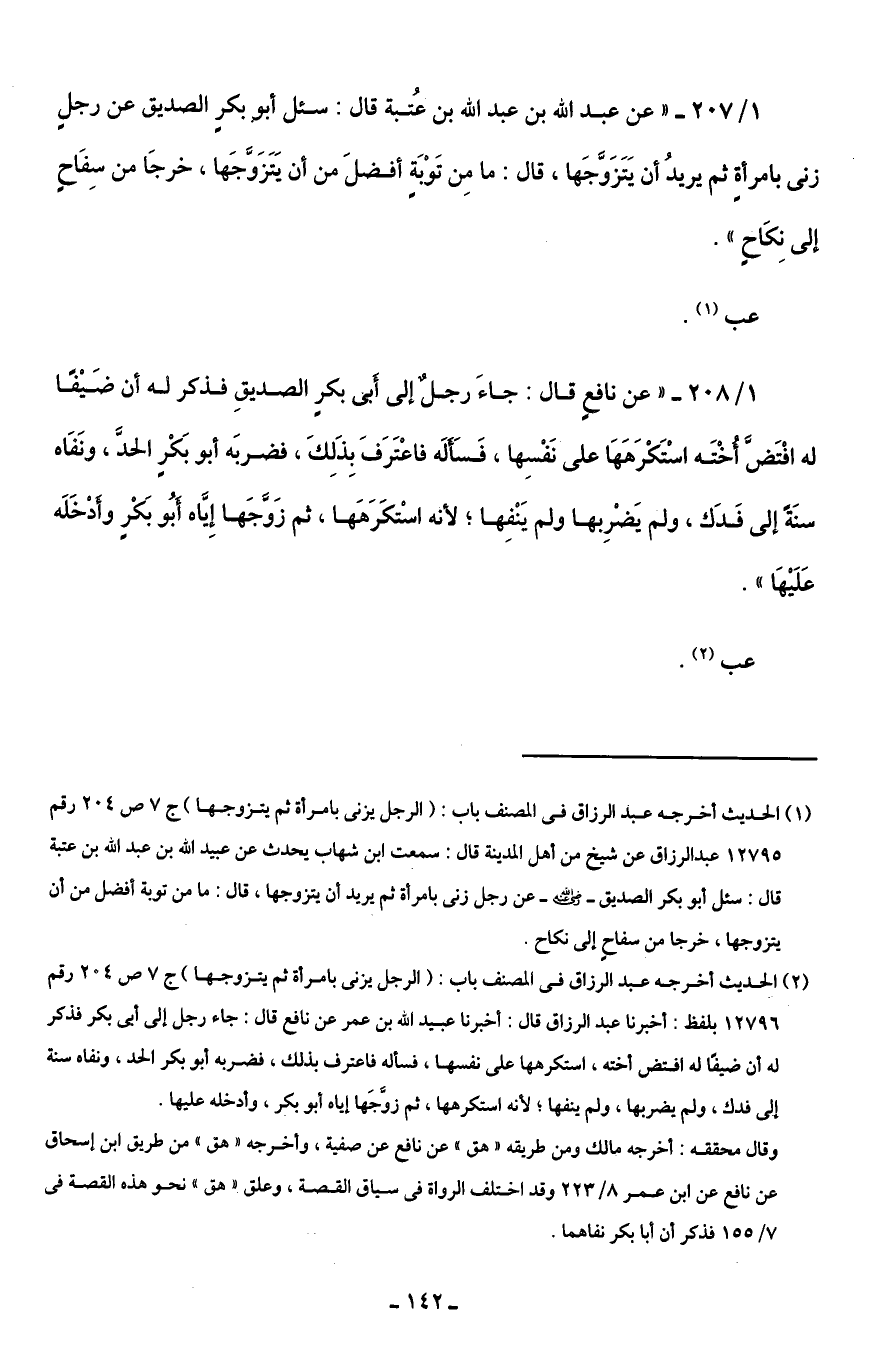 ٢٠٧/١ ـ « عن عبـد الله بن عبد الله بن عُتـبة قال : سـئل أبو بكرٍ الصديق عن رجلٍ
زنى بامرأةٍ ثم يريدُ أن يَتَزَوَّجَها ، قال : ما مِن تَوْبَةٍ أفـضلَ من أن يَتَزَوَّجَها ، خرجَا من سِفَاحٍ
إلى نِكَاحٍ » .
عب (١) .
٢٠٨/١ ـ « عن نافعٍ قـال : جـاءَ رجـلٌ إلى أَبى بكرٍ الصـديقِ فـذكر لـه أن ضَـيْفًـا
له افْتَضَّ أُخْتَـه اسْتَكْرَهَهَا على نَفْسِها ، فَـسَأَلَه فاعْتَرَفَ بِذَلِكَ ، فضـربَه أبو بَكْرٍ الحدَّ ، ونَفَاه
سنَةً إلى فَـدَك ، ولم يَضْرِبهـا ولم يَنْفِهـا ؛ لأنه اسْتكَرَهَهـا ، ثم زَوَّجَهـا إِيَّاه أَبُو بَكْرٍ وأَدْخَلَه
عَلَيْهَا » .
عب (٢) .
(١) الحـديث أخـرجـه عـبد الرزاق فـى المصنف باب : ( الرجل يزنى بامـرأة ثم يتـزوجـهـا ) ج ٧ ص ٢٠٤ رقم
١٢٧٩٥ عبدالرزاق عن شيخ من أهل المدينة قال : سمعت ابن شهاب يحدث عن عبيد الله بن عبد الله بن عتبة
قال : سئل أبو بكر الصديق ـ رضي الله عنه ـ عن رجل زنى بامرأة ثم يريد أن يتزوجها ، قال : ما من توبة أفضل من أن
يتزوجها ، خرجا من سفاح إلى نكاح .
(٢) الحـديث أخـرجـه عـبد الرزاق فـى المصنف باب : ( الرجل يزنى بامـرأة ثم يتـزوجـهـا ) ج ٧ ص ٢٠٤ رقم
١٢٧٩٦ بلفظ : أخبرنا عبد الرزاق قال : أخبرنا عبـيد الله بن عمر عن نافع قال : جاء رجل إلى أبى بكر فذكر
له أن ضيفًا له افـتض أخته ، استكرهها على نفسهـا ، فسأله فاعترف بذلك ، فضربه أبو بكر الحد ، ونفاه سنة
إلى فدك ، ولم يضربها ، ولم ينفها ؛ لأنه استكرهها ، ثم زوَّجَها إياه أبو بكر ، وأدخله عليها .
وقال محققـه : أخرجه مالك ومن طريقه « هق » عن نافع عن صفية ، وأخـرجه « هق » من طريق ابن إسحاق
عن نافع عن ابن عـمـر ٢٢٣/٨ وقد اخـتلف الرواة فى سـياق القـصـة ، وعلق « هق » نحـو هذه القصـة فى
١٥٥/٧ فذكر أن أبا بكر نفاهما .
ـ ١٤٢ ـ